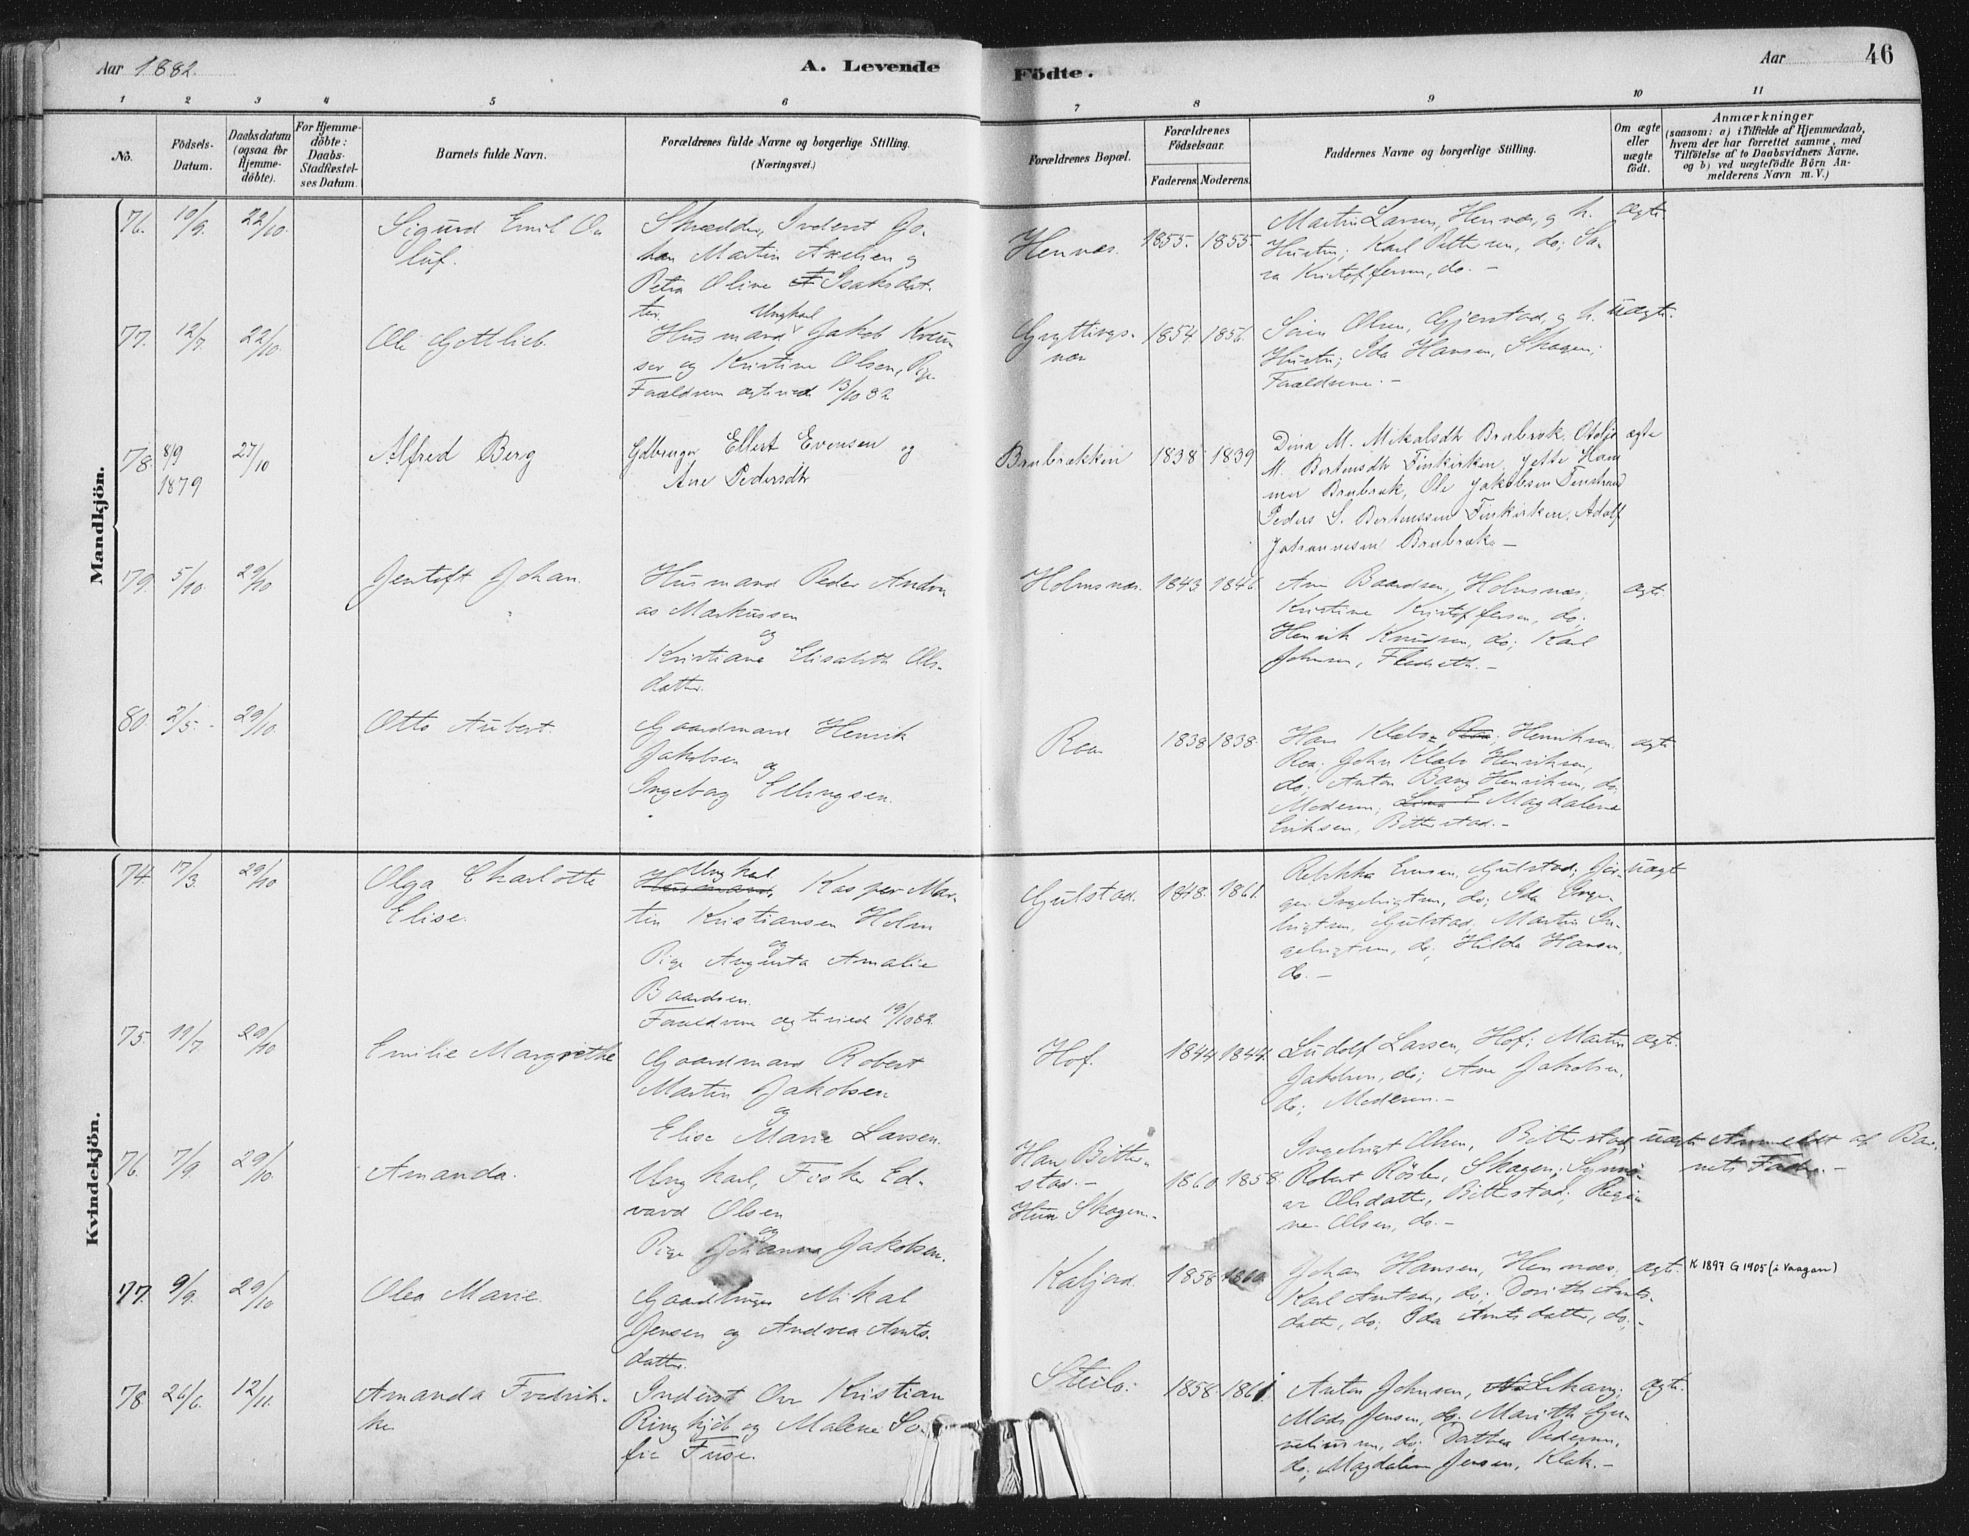 Aar 1882.
A. Levende
Födte.
Aar
46
1 2 3 4 5 6 7 8 9 10 11
No.
Födsels-
Datum.
Daabsdatum
(ogsaa for
Hjemme-
döbte).
For Hjemme-
döbte:
Daabs-
Stadfæstel-
ses Datum.
Barnets fulde Navn.
Forældrenes fulde Navne og borgerlige Stilling.
(Næringsvei.)
Forældrenes Bopæl.
Forældrenes
Födselsaar.
Faderens. Moderens.
Faddernes Navne og borgerlige Stilling.
Om ægte
eller
uægte
födt.
Anmærkninger
(saasom: a) i Tilfælde af Hjemmedaab,
hvem der har forrettet samme, med
Tilföielse af to Daabsvidners Navne,
og b) ved uægtefödte Börn An-
melderens Navn m. V.)
Mandkjön.
76. 10/9. 22/10.
Sigurd Emil O-
luf.
Skrædder, Inderst Jo-
han Martin Axelsen og
Petra Olive Isaksdat-
ter.
Hennæs. 1855. 1855.
Martin Larsen, Hennæs, og h.
Hustru; Karl Pettersen, do; Sa-
ra Kristoffersen, do. –
ægte
77. 12/7. 22/10.
Ole Gottlieb.
Ungkarl
Husmand Jakob
og Kristine Olsen, Pige
Forældrene ægteviede 13/10 82
Gryttings-
nær
1854 1856.
Sören Olsen, Gjerstad, og h.
Hustru; Ida Hansen, Skagen;
Forældrene. –
Uægte.
78. 8/9 1879 27/10
Alfred Berg
Gdbruger Ellert Evensen og
Ane Pedersdtr
Brubrækken 1838 1839
Dina M. Mikalsdtr Brubræk, Otelje
M. Bertensdtr Finkirken, Jette Ham
mer Brubræk, Ole Jakobsen Finstrand
Peders S. Bertenssen Finkirken, Adolf
Johannesen Brubræk –
ægte
79. 5/10. 29/10
Jentoft Johan.
Husmand Peder Andre-
as Markussen
og
Kristiane Elisabeth Ols-
datter.
Holmsnæs. 1843 1846
Ane Baardsen, Holmsnæs;
Kristine Kristoffersen, do;
Henrik Knudsen, do; Karl
Johnsen, –
ægte.
80. 2/5. 29/10.
Otto Aubert.
Gaardmand Henrik
Jakobsen
og
Ingeborg Ellingsen.
Roa 1838 1838.
Hans Klæbo Henriksen
Roa. John Klæbo Henriksen,
do; Anton Bang Henriksen, do;
Moderen; Magdalene
Eriksen, Bitterstad. –
ægte
Kvindekjön.
74. 17/3. 29/10
Olga Charlotte
Elise.
Ungkarl
Husmand, Kasper Mar-
tin Kristiansen Holm
og
Pige Augusta Amalie
Baardsen.
Forældrene ægteviede 19/10 82.
Gulstad. 1848. 1861.
Rebekka Evensen, Gulstad; Jör-
gen Ingebrigtsen, do; Ida Inge-
brigtsen, Gulstad, Martin In-
gebrigtsen, do; Hilda Hansen,
do. –
uægte
75. 19/7. 29/10
Emilie Margrethe
Gaardmand Robert
Martin Jakobsen
og
Elise Marie Larsen.
Hof. 1844 1844.
Ludolf Larsen, Hof; Martin
Jakobsen, do; Ane Jakobsen,
do; Moderen. –
ægte.
76. 7/9. 29/10.
Amanda.
Ungkarl, Fisker Ed-
vard Olsen
og
Pige Johanna Jakobsen.
Han Bitter-
stad. –
Hun Skagen. –
1860. 1858.
Ingebrigt Olsen, Bitterstad,
Robert Skagen; Synnö-
ve Olsdatter, Bitterstad; Regi-
ne Olsen, do. –
uægte
Anmeldt af Bar-
nets Fader. –
77. 9/9. 29/10
Olea Marie.
Gaardbruger Mikal
Jensen og Andrea Arnts-
datter.
Kaljord. 1858 1860.
Johan Hansen, Hennæs,
Karl Arntsen, do; Dorith Arnts-
datter, do; Ida Arntsdatter, do; –
ægte.
K 1897 G 1905 (i Vaagan)
78. 26/6. 12/11.
Amanda Fredrik-
ke.
Inderst Ove Kristian
Ringkjöb og Malene So-
fie Fuse.
Steilo: 1858. 1861
Anton Johnsen,
Mads Jensen, do. Marith
do; Dorthea Pedersen,
do; Magdalene Jensen, –
ægte.